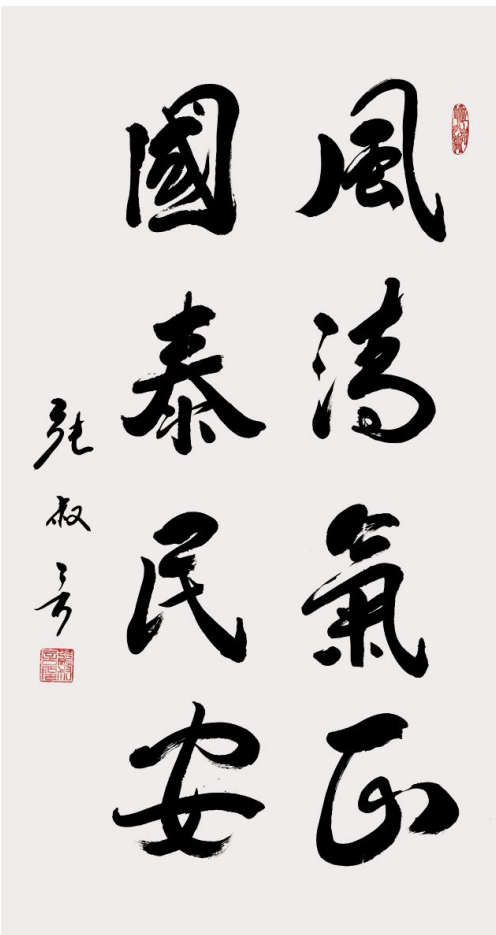 風清氣正
國泰民安
張叔言